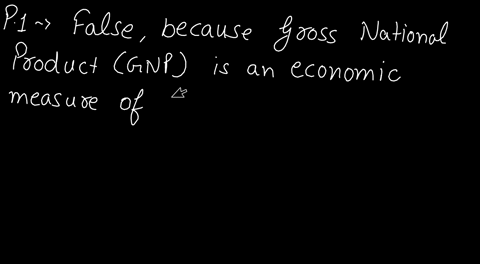 P.1 → False, because Gross National
Product (GNP) is an economic
measure of